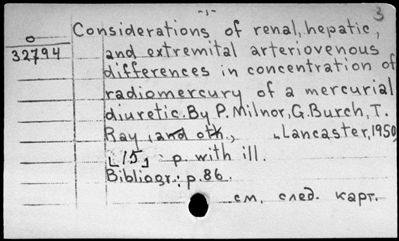 -1-
3
Considerations of renal, hepatic,
o
and extremital arteriovenous
32794
differences in concentration of
radiomercury of a mercurial
diuretic. By P. Milnor, G. Burch, T.
Ray, and oth., Lancaster, 1950
[15] p. with ill.
Bibliogr.: p. 86.
см. след. карт.